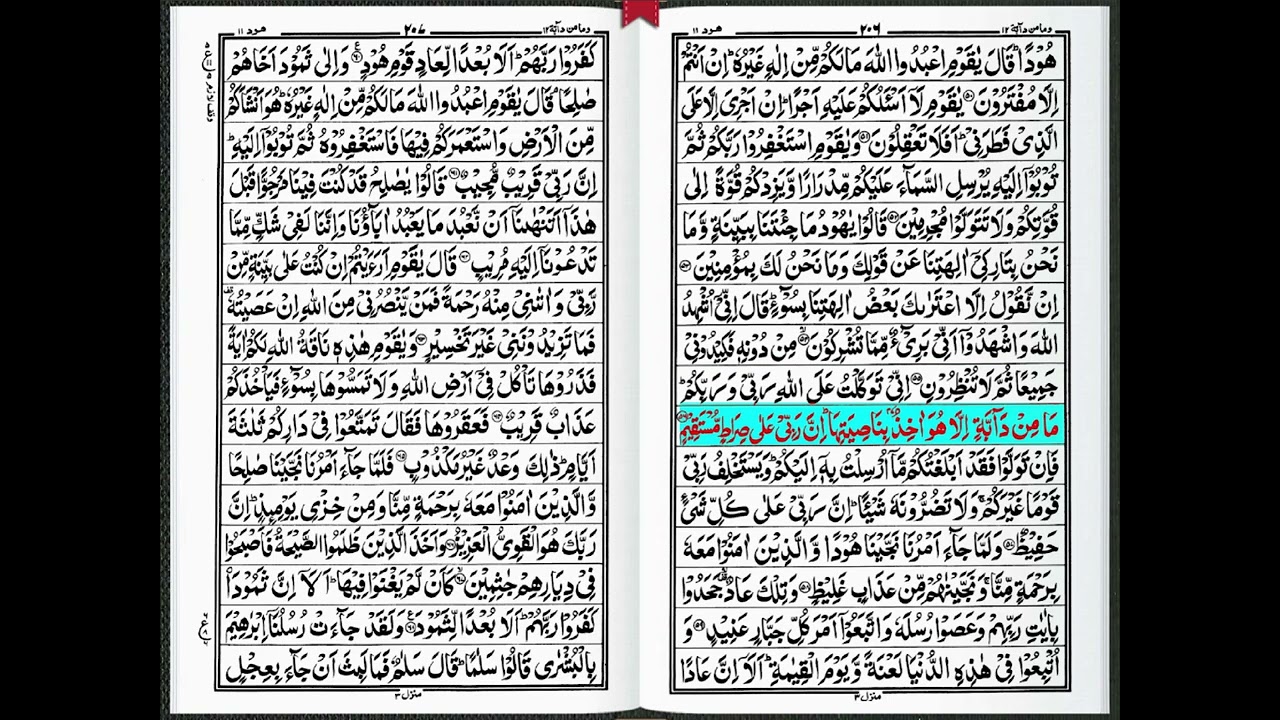 ومامن دآبة ١٢
٢٠٦
هود ١١
هُوۡدًا ؕ قَالَ يٰقَوۡمِ اعۡبُدُوا اللّٰهَ مَا لَكُمۡ مِّنۡ اِلٰهٍ غَيۡرُهٗ ؕ اِنۡ اَنۡتُمۡ
اِلَّا مُفۡتَرُوۡنَ ﴿۵۰﴾ يٰقَوۡمِ لَاۤ اَسۡئَلُكُمۡ عَلَيۡهِ اَجۡرًا ؕ اِنۡ اَجۡرِىَ اِلَّا عَلَى
الَّذِىۡ فَطَرَنِىۡ ؕ اَفَلَا تَعۡقِلُوۡنَ ﴿۵۱﴾ وَيٰقَوۡمِ اسۡتَغۡفِرُوۡا رَبَّكُمۡ ثُمَّ
تُوۡبُوۡۤا اِلَيۡهِ يُرۡسِلِ السَّمَآءَ عَلَيۡكُمۡ مِّدۡرَارًا وَّيَزِدۡكُمۡ قُوَّةً اِلٰى
قُوَّتِكُمۡ وَلَا تَتَوَلَّوۡا مُجۡرِمِيۡنَ ﴿۵۲﴾ قَالُوۡا يٰهُوۡدُ مَا جِئۡتَنَا بِبَيِّنَةٍ وَّمَا
نَحۡنُ بِتَارِكِىۡۤ اٰلِهَتِنَا عَنۡ قَوۡلِكَ وَمَا نَحۡنُ لَكَ بِمُؤۡمِنِيۡنَ ﴿۵۳﴾
اِنۡ نَّقُوۡلُ اِلَّا اعۡتَرٰٮكَ بَعۡضُ اٰلِهَتِنَا بِسُوۡٓءٍ ؕ قَالَ اِنِّىۡۤ اُشۡهِدُ
اللّٰهَ وَاشۡهَدُوۡۤا اَنِّىۡ بَرِىۡٓءٌ مِّمَّا تُشۡرِكُوۡنَ ﴿۵۴﴾ مِنۡ دُوۡنِهٖ فَكِيۡدُوۡنِىۡ
جَمِيۡعًا ثُمَّ لَا تُنۡظِرُوۡنِ ﴿۵۵﴾ اِنِّىۡ تَوَكَّلۡتُ عَلَى اللّٰهِ رَبِّىۡ وَرَبِّكُمۡ ؕ
مَا مِنۡ دَآبَّةٍ اِلَّا هُوَ اٰخِذٌۢ بِنَاصِيَتِهَا ؕ اِنَّ رَبِّىۡ عَلٰى صِرَاطٍ مُّسۡتَقِيۡمٍ ﴿۵۶﴾
فَاِنۡ تَوَلَّوۡا فَقَدۡ اَبۡلَغۡتُكُمۡ مَّاۤ اُرۡسِلۡتُ بِهٖۤ اِلَيۡكُمۡ ؕ وَيَسۡتَخۡلِفُ رَبِّىۡ
قَوۡمًا غَيۡرَكُمۡ ۚ وَلَا تَضُرُّوۡنَهٗ شَيۡئًا ؕ اِنَّ رَبِّىۡ عَلٰى كُلِّ شَىۡءٍ
حَفِيۡظٌ ﴿۵۷﴾ وَلَمَّا جَآءَ اَمۡرُنَا نَجَّيۡنَا هُوۡدًا وَّالَّذِيۡنَ اٰمَنُوۡا مَعَهٗ
بِرَحۡمَةٍ مِّنَّا ۚ وَنَجَّيۡنٰهُمۡ مِّنۡ عَذَابٍ غَلِيۡظٍ ﴿۵۸﴾ وَتِلۡكَ عَادٌ ۟ۙ جَحَدُوۡا
بِاٰيٰتِ رَبِّهِمۡ وَعَصَوۡا رُسُلَهٗ وَاتَّبَعُوۡۤا اَمۡرَ كُلِّ جَبَّارٍ عَنِيۡدٍ ﴿۵۹﴾ وَ
اُتۡبِعُوۡا فِىۡ هٰذِهِ الدُّنۡيَا لَعۡنَةً وَّيَوۡمَ الۡقِيٰمَةِ ؕ اَلَاۤ اِنَّ عَادًا
منزل ٣
ومامن دآبة ١٢
٢٠٧
هود ١١
كَفَرُوۡا رَبَّهُمۡ ؕ اَلَا بُعۡدًا لِّعَادٍ قَوۡمِ هُوۡدٍ ﴿۶۰﴾ وَاِلٰى ثَمُوۡدَ اَخَاهُمۡ
صٰلِحًا ۘ قَالَ يٰقَوۡمِ اعۡبُدُوا اللّٰهَ مَا لَكُمۡ مِّنۡ اِلٰهٍ غَيۡرُهٗ ؕ هُوَ اَنۡشَاَكُمۡ
مِّنَ الۡاَرۡضِ وَاسۡتَعۡمَرَكُمۡ فِيۡهَا فَاسۡتَغۡفِرُوۡهُ ثُمَّ تُوۡبُوۡۤا اِلَيۡهِ ؕ
اِنَّ رَبِّىۡ قَرِيۡبٌ مُّجِيۡبٌ ﴿۶۱﴾ قَالُوۡا يٰصٰلِحُ قَدۡ كُنۡتَ فِيۡنَا مَرۡجُوًّا قَبۡلَ
هٰذَاۤ اَتَنۡهٰٮنَاۤ اَنۡ نَّعۡبُدَ مَا يَعۡبُدُ اٰبَآؤُنَا وَاِنَّنَا لَفِىۡ شَكٍّ مِّمَّا
تَدۡعُوۡنَاۤ اِلَيۡهِ مُرِيۡبٍ ﴿۶۲﴾ قَالَ يٰقَوۡمِ اَرَءَيۡتُمۡ اِنۡ كُنۡتُ عَلٰى بَيِّنَةٍ مِّنۡ
رَّبِّىۡ وَاٰتٰٮنِىۡ مِنۡهُ رَحۡمَةً فَمَنۡ يَّنۡصُرُنِىۡ مِنَ اللّٰهِ اِنۡ عَصَيۡتُهٗ
فَمَا تَزِيۡدُوۡنَنِىۡ غَيۡرَ تَخۡسِيۡرٍ ﴿۶۳﴾ وَيٰقَوۡمِ هٰذِهٖ نَاقَةُ اللّٰهِ لَكُمۡ اٰيَةً
فَذَرُوۡهَا تَاۡكُلۡ فِىۡۤ اَرۡضِ اللّٰهِ وَلَا تَمَسُّوۡهَا بِسُوۡٓءٍ فَيَاۡخُذَكُمۡ
عَذَابٌ قَرِيۡبٌ ﴿۶۴﴾ فَعَقَرُوۡهَا فَقَالَ تَمَتَّعُوۡا فِىۡ دَارِكُمۡ ثَلٰثَةَ
اَيَّامٍ ؕ ذٰلِكَ وَعۡدٌ غَيۡرُ مَكۡذُوۡبٍ ﴿۶۵﴾ فَلَمَّا جَآءَ اَمۡرُنَا نَجَّيۡنَا صٰلِحًا
وَّالَّذِيۡنَ اٰمَنُوۡا مَعَهٗ بِرَحۡمَةٍ مِّنَّا وَمِنۡ خِزۡىِ يَوۡمِئِذٍ ؕ اِنَّ
رَبَّكَ هُوَ الۡقَوِىُّ الۡعَزِيۡزُ ﴿۶۶﴾ وَاَخَذَ الَّذِيۡنَ ظَلَمُوا الصَّيۡحَةُ فَاَصۡبَحُوۡا
فِىۡ دِيَارِهِمۡ جٰثِمِيۡنَ ﴿۶۷﴾ كَاَنۡ لَّمۡ يَغۡنَوۡا فِيۡهَا ؕ اَلَاۤ اِنَّ ثَمُوۡدَا۟
كَفَرُوۡا رَبَّهُمۡ ؕ اَلَا بُعۡدًا لِّثَمُوۡدَ ﴿۶۸﴾ وَلَقَدۡ جَآءَتۡ رُسُلُنَاۤ اِبۡرٰهِيۡمَ
بِالۡبُشۡرٰى قَالُوۡا سَلٰمًا ؕ قَالَ سَلٰمٌ فَمَا لَبِثَ اَنۡ جَآءَ بِعِجۡلٍ
منزل ٣